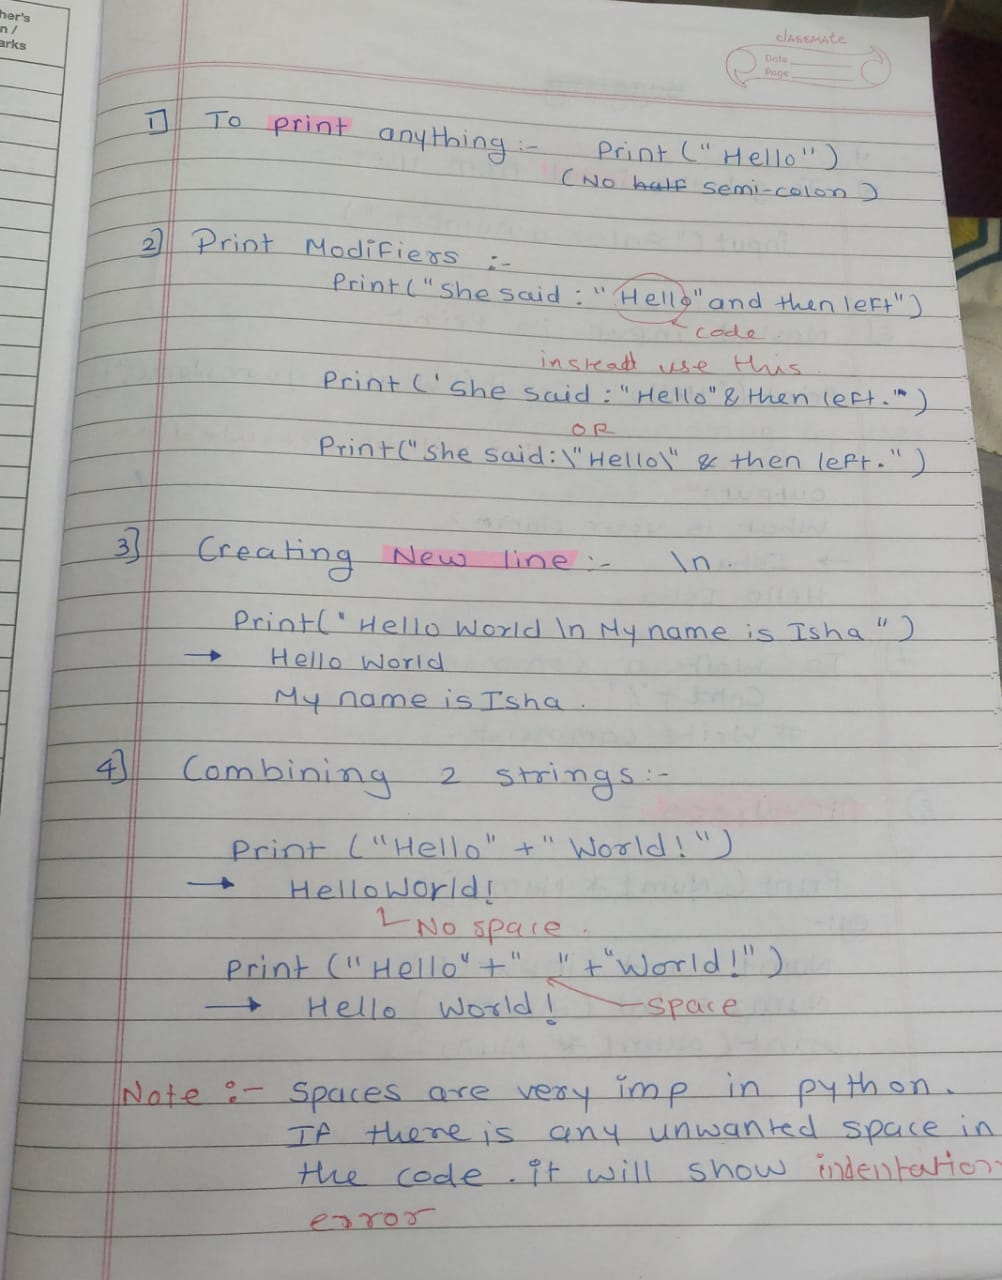 her's
n /
arks
classmate
Date
Page
1] To print anything :- Print ("Hello")
(No half semi-colon)
2] Print Modifiers :-
Print("She said : "Hello" and then left")
code.
instead use this.
Print ('She said : "Hello" & then left.')
OR
Print("She said:\"Hello\" & then left.")
3] Creating New line :- \n.
Print("Hello World \n My name is Isha")
→ Hello World
My name is Isha.
4] Combining 2 strings :-
Print ("Hello" + "World!")
→ HelloWorld!
No space.
Print ("Hello" + " " + "World!")
→ Hello World!
space
Note :- Spaces are very imp in python.
If there is any unwanted space in
the code. it will show indentation
error